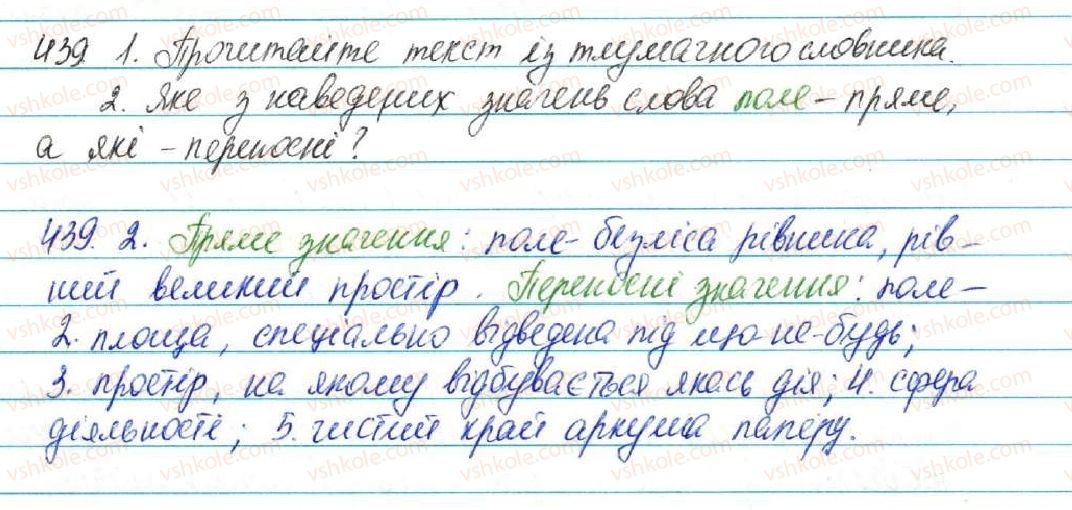 439. 1. Прочитайте текст із тлумачного словника.
2. Яке з наведених значень слова поле – пряме,
а які – переносні?
439. 2. Пряме значення: поле - безліса рівнина, рів-
ний великий простір. Переносні значення: поле –
2. площа, спеціально відведена під що-не-будь;
3. простір, на якому відбувається якась дія; 4. сфера
діяльності; 5. чистий край аркуша паперу.
vshkole.com